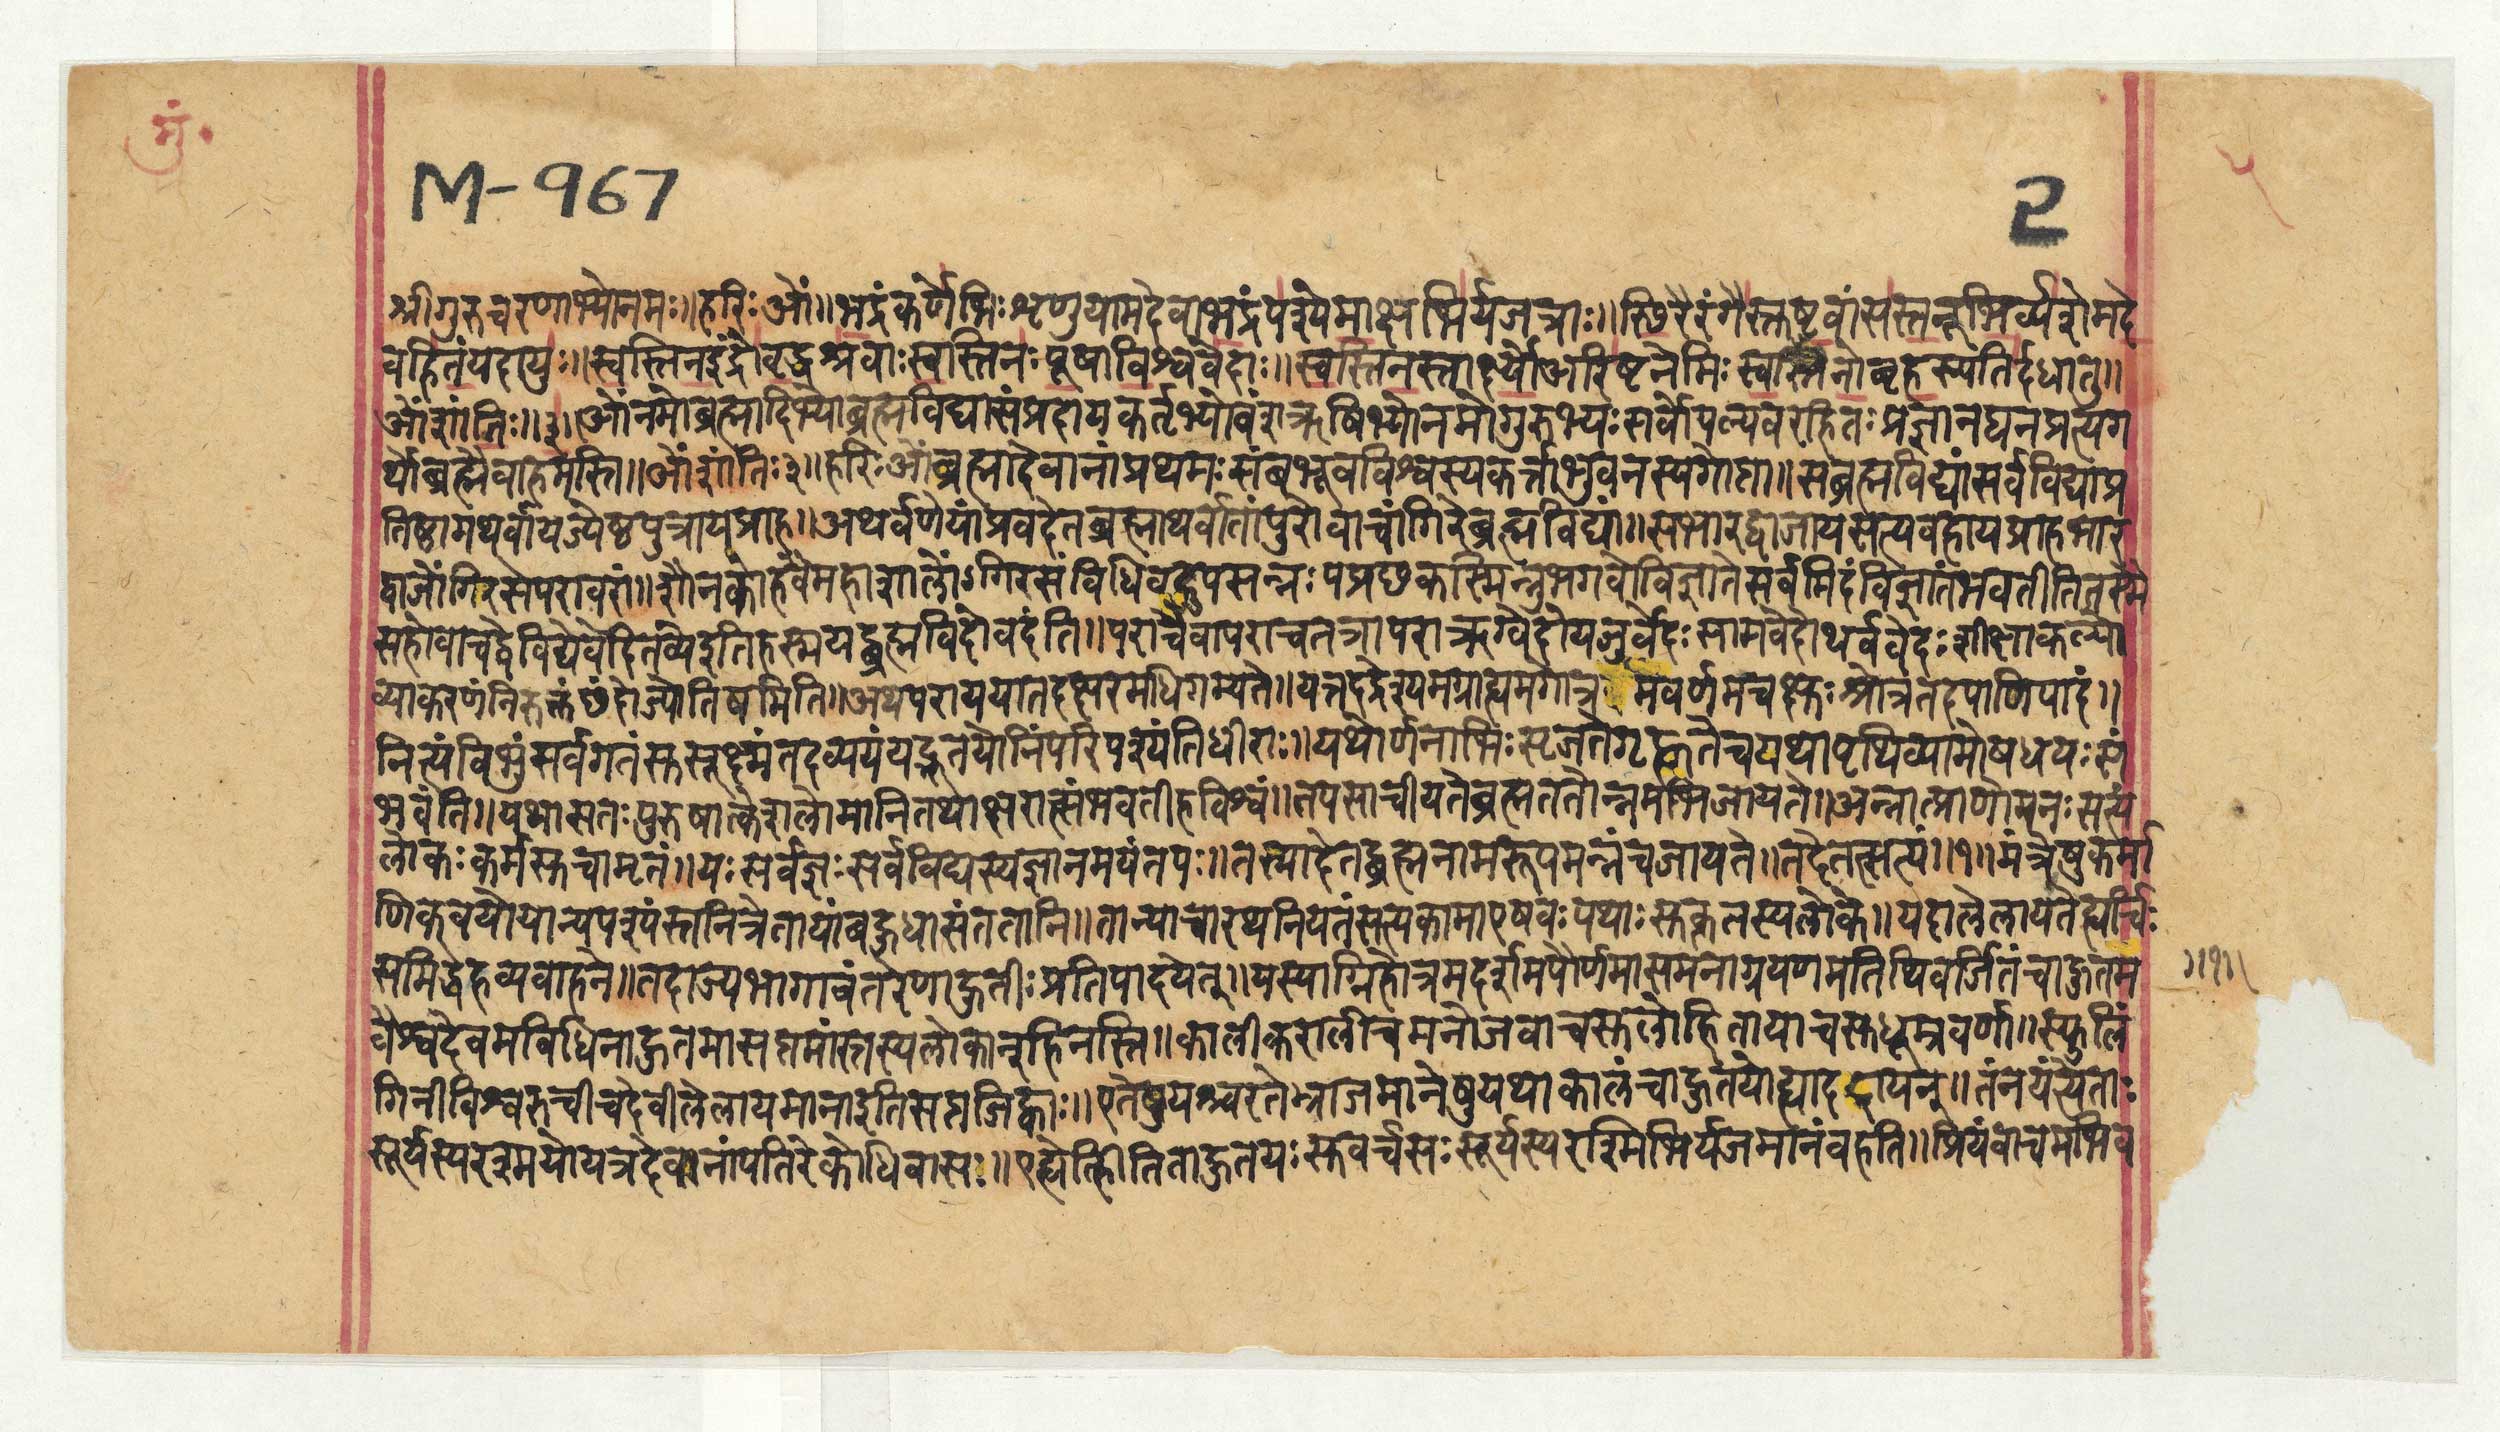 मुं.
M-967
2
श्रीगुरुचरणाभ्योनमः॥हरिःओं॥भद्रंकर्णेभिःशृणुयामदेवाभद्रंपश्येमाक्षभिर्यजत्राः॥स्थिरैरंगैस्तुष्टुवांसस्तनूभिर्व्यशेमदे
वहितंयदायुः॥स्वस्तिनइंद्रोवृद्धश्रवाःस्वस्तिनःपूषाविश्ववेदाः॥स्वस्तिनस्तार्क्ष्योअरिष्टनेमिःस्वस्तिनोबृहस्पतिर्दधातु॥
ओंशांतिः॥३॥ओंनमोब्रह्मादिभ्योब्रह्मविद्यासंप्रदायकर्तृभ्योवंशऋषिभ्योनमोगुरुभ्यःसर्वोपल्पवरहितःप्रज्ञानघनप्रत्यग
र्थोब्रह्मैवाहमस्मि॥ओंशांतिः३॥हरिःओंब्रह्मादेवानांप्रथमःसंबभूवविश्वस्यकर्त्ताभुवनस्यगोप्ता॥सब्रह्मविद्यांसर्वविद्याप्र
तिष्ठामथर्वायज्येष्ठपुत्रायप्राह॥अथर्वणेयांप्रवदेतब्रह्माथर्वातांपुरोवाचांगिरेब्रह्मविद्यां॥सभारद्वाजायसत्यवहायप्राहभार
द्वाजोंगिरसेपरावरां॥शौनकोहवैमहाशालोंऽगिरसंविधिवदुपसन्नःपप्रछकस्मिन्नुभगवोविज्ञातेसर्वमिदंविज्ञातंभवतीतितस्मै
सहोवाचद्वेविद्येवेदितव्येइतिहस्मयद्ब्रह्मविदोवदंति॥पराचैवापराचतत्रापराऋग्वेदोयजुर्वेदःसामवेदोथर्ववेदःशीक्षाकल्पो
व्याकरणंनिरुक्तंछंदोज्योतिषमिति॥अथपराययातदक्षरमधिगम्यते॥यत्तदद्रेश्यमग्राह्यमगोत्रमवर्णमचक्षुःश्रोत्रंतदपाणिपादं॥
नित्यंविभुंसर्वगतंसुसूक्ष्मंतदव्ययंयद्भूतयोनिंपरिपश्यंतिधीराः॥यथोर्णनाभिःसृजतेगृह्णतेचयथापृथिव्यामोषधयःसं
भवंति॥यथासतःपुरुषात्केशलोमानितथाक्षरात्संभवतीहविश्वं॥तपसाचीयतेब्रह्मततोन्नमभिजायते॥अन्नात्प्राणोमनःसत्यं
लोकःकर्मसुचामृतं॥यःसर्वज्ञःसर्वविद्यस्यज्ञानमयंतपः॥तस्मादेतद्ब्रह्मनामरूपमन्नंचजायते॥तदेतत्सत्यं॥१॥मंत्रेषुकर्मा
णिकवयोयान्यपश्यंस्तानित्रेतायांबहुधासंततानि॥तान्याचारथनियतंसत्यकामाएषवःपथाःसुकृतस्यलोके॥यदालेलायतेह्यर्चिः
समिद्धेहव्यवाहने॥तदाज्यभागावंतरेणाहुतीःप्रतिपादयेत्॥यस्याग्निहोत्रमदर्शमपौर्णमासमनाग्रयणमतिथिवर्जितंचाहुतम
॥१॥
वैश्वदेवमविधिनाहुतमासप्तमांस्तस्यलोकान्हिनस्ति॥कालीकरालीचमनोजवाचसुलोहितायाचसुधूम्रवर्णा॥स्फुलिं
गिनीविश्वरुचीचदेवीलेलायमानाइतिसप्तजिह्वाः॥एतेषुयश्चरतेभ्राजमानेषुयथाकालंचाहुतयोह्याददायन्॥तंनयंत्येताः
सूर्यस्यरश्मयोयत्रदेवानांपतिरेकोधिवासः॥एह्येहीतितमाहुतयःसुवर्चसःसूर्यस्यरश्मिभिर्यजमानंवहंति॥प्रियंवाचमभिव